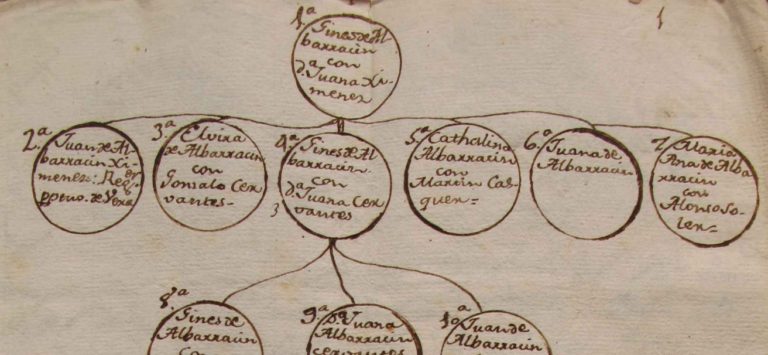 1
1.ª
Gines de Al
barracin
con
d.ª Juana Xi-
menez
2.ª
Juan de Al
barracin Xi
menez: Reg.or
pptuo. de Vera
3.ª
Elvira
de Albarracin
con
Gonzalo Cer
vantes-
4.ª
Gines de Al
barracin
con
d.ª Juana Cer
vantes
3
5.ª
Cathalina
Albarracin
con
Martin Cal
quer=
6.ª
Juana de
Albarracin
7.
Maria
Ana de Alba
rracin
con
Alonso So-
ler=
8.ª
Gines de
Albarracin
con
9.ª
D.ª Juana
Albarracin
cervantes
10.ª
Juan de
Albarracin